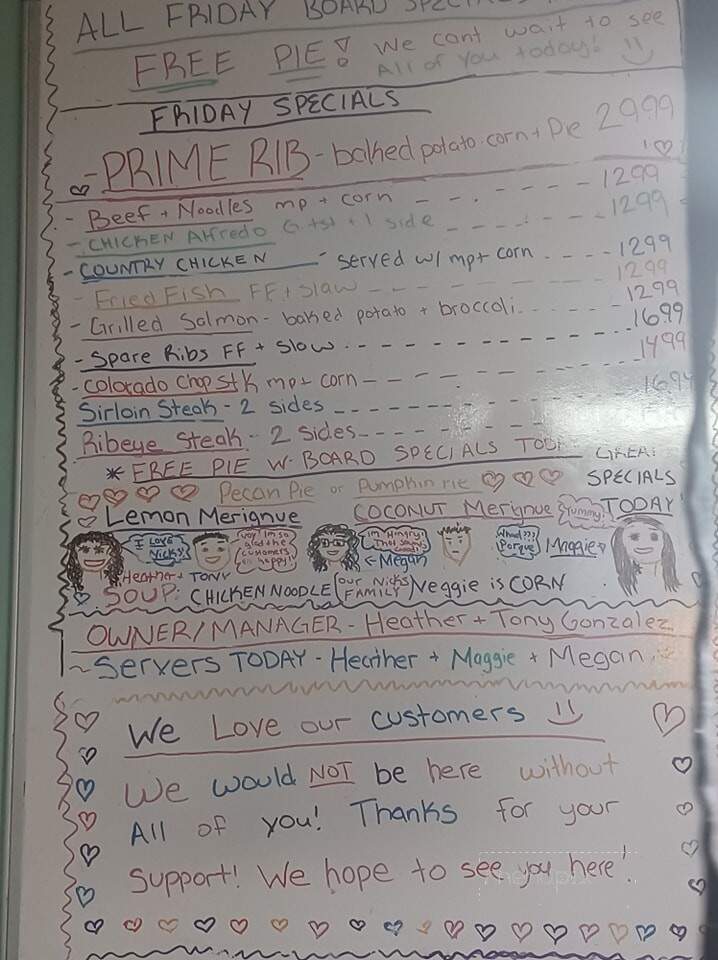 ALL FRIDAY BOARD
FREE PIE! We cant wait to see
All of you today!
FRIDAY SPECIALS
- PRIME RIB - baked potato corn + Pie 29.99
- Beef + Noodles mp + corn - - - - 12.99
- CHICKEN Alfredo G. tst + 1 side - - - - 12.99
- COUNTRY CHICKEN - served w/ mp + corn - - - - 12.99
- Fried Fish FF + slaw - - - - 12.99
- Grilled Salmon - baked potato + broccoli - - - - 12.99
- Spare Ribs FF + slow - - - - 16.99
- Colorado Chop Stk mp + corn - - - - 14.99
Sirloin Steak - 2 sides - - - -
Ribeye Steak - 2 sides - - - -
* FREE PIE W- BOARD SPECIALS
SPECIALS
TODAY
Pecan Pie or Pumpkin Pie
Lemon Merignue COCONUT Merignue Yummy!
I Love Nick's!
Yay! Im so glad the customers happy!
Im Hungry! That sounds Good!
← Megan
What??? Porque
Maggie
Heather + TONY
SOUP: CHICKEN NOODLE (OUR Nick's FAMILY) Veggie is CORN
OWNER/MANAGER - Heather + Tony Gonzalez
~ Servers TODAY - Heather + Maggie + Megan
We Love our customers
We would NOT be here without
All of you! Thanks for your
Support! We hope to see you here!